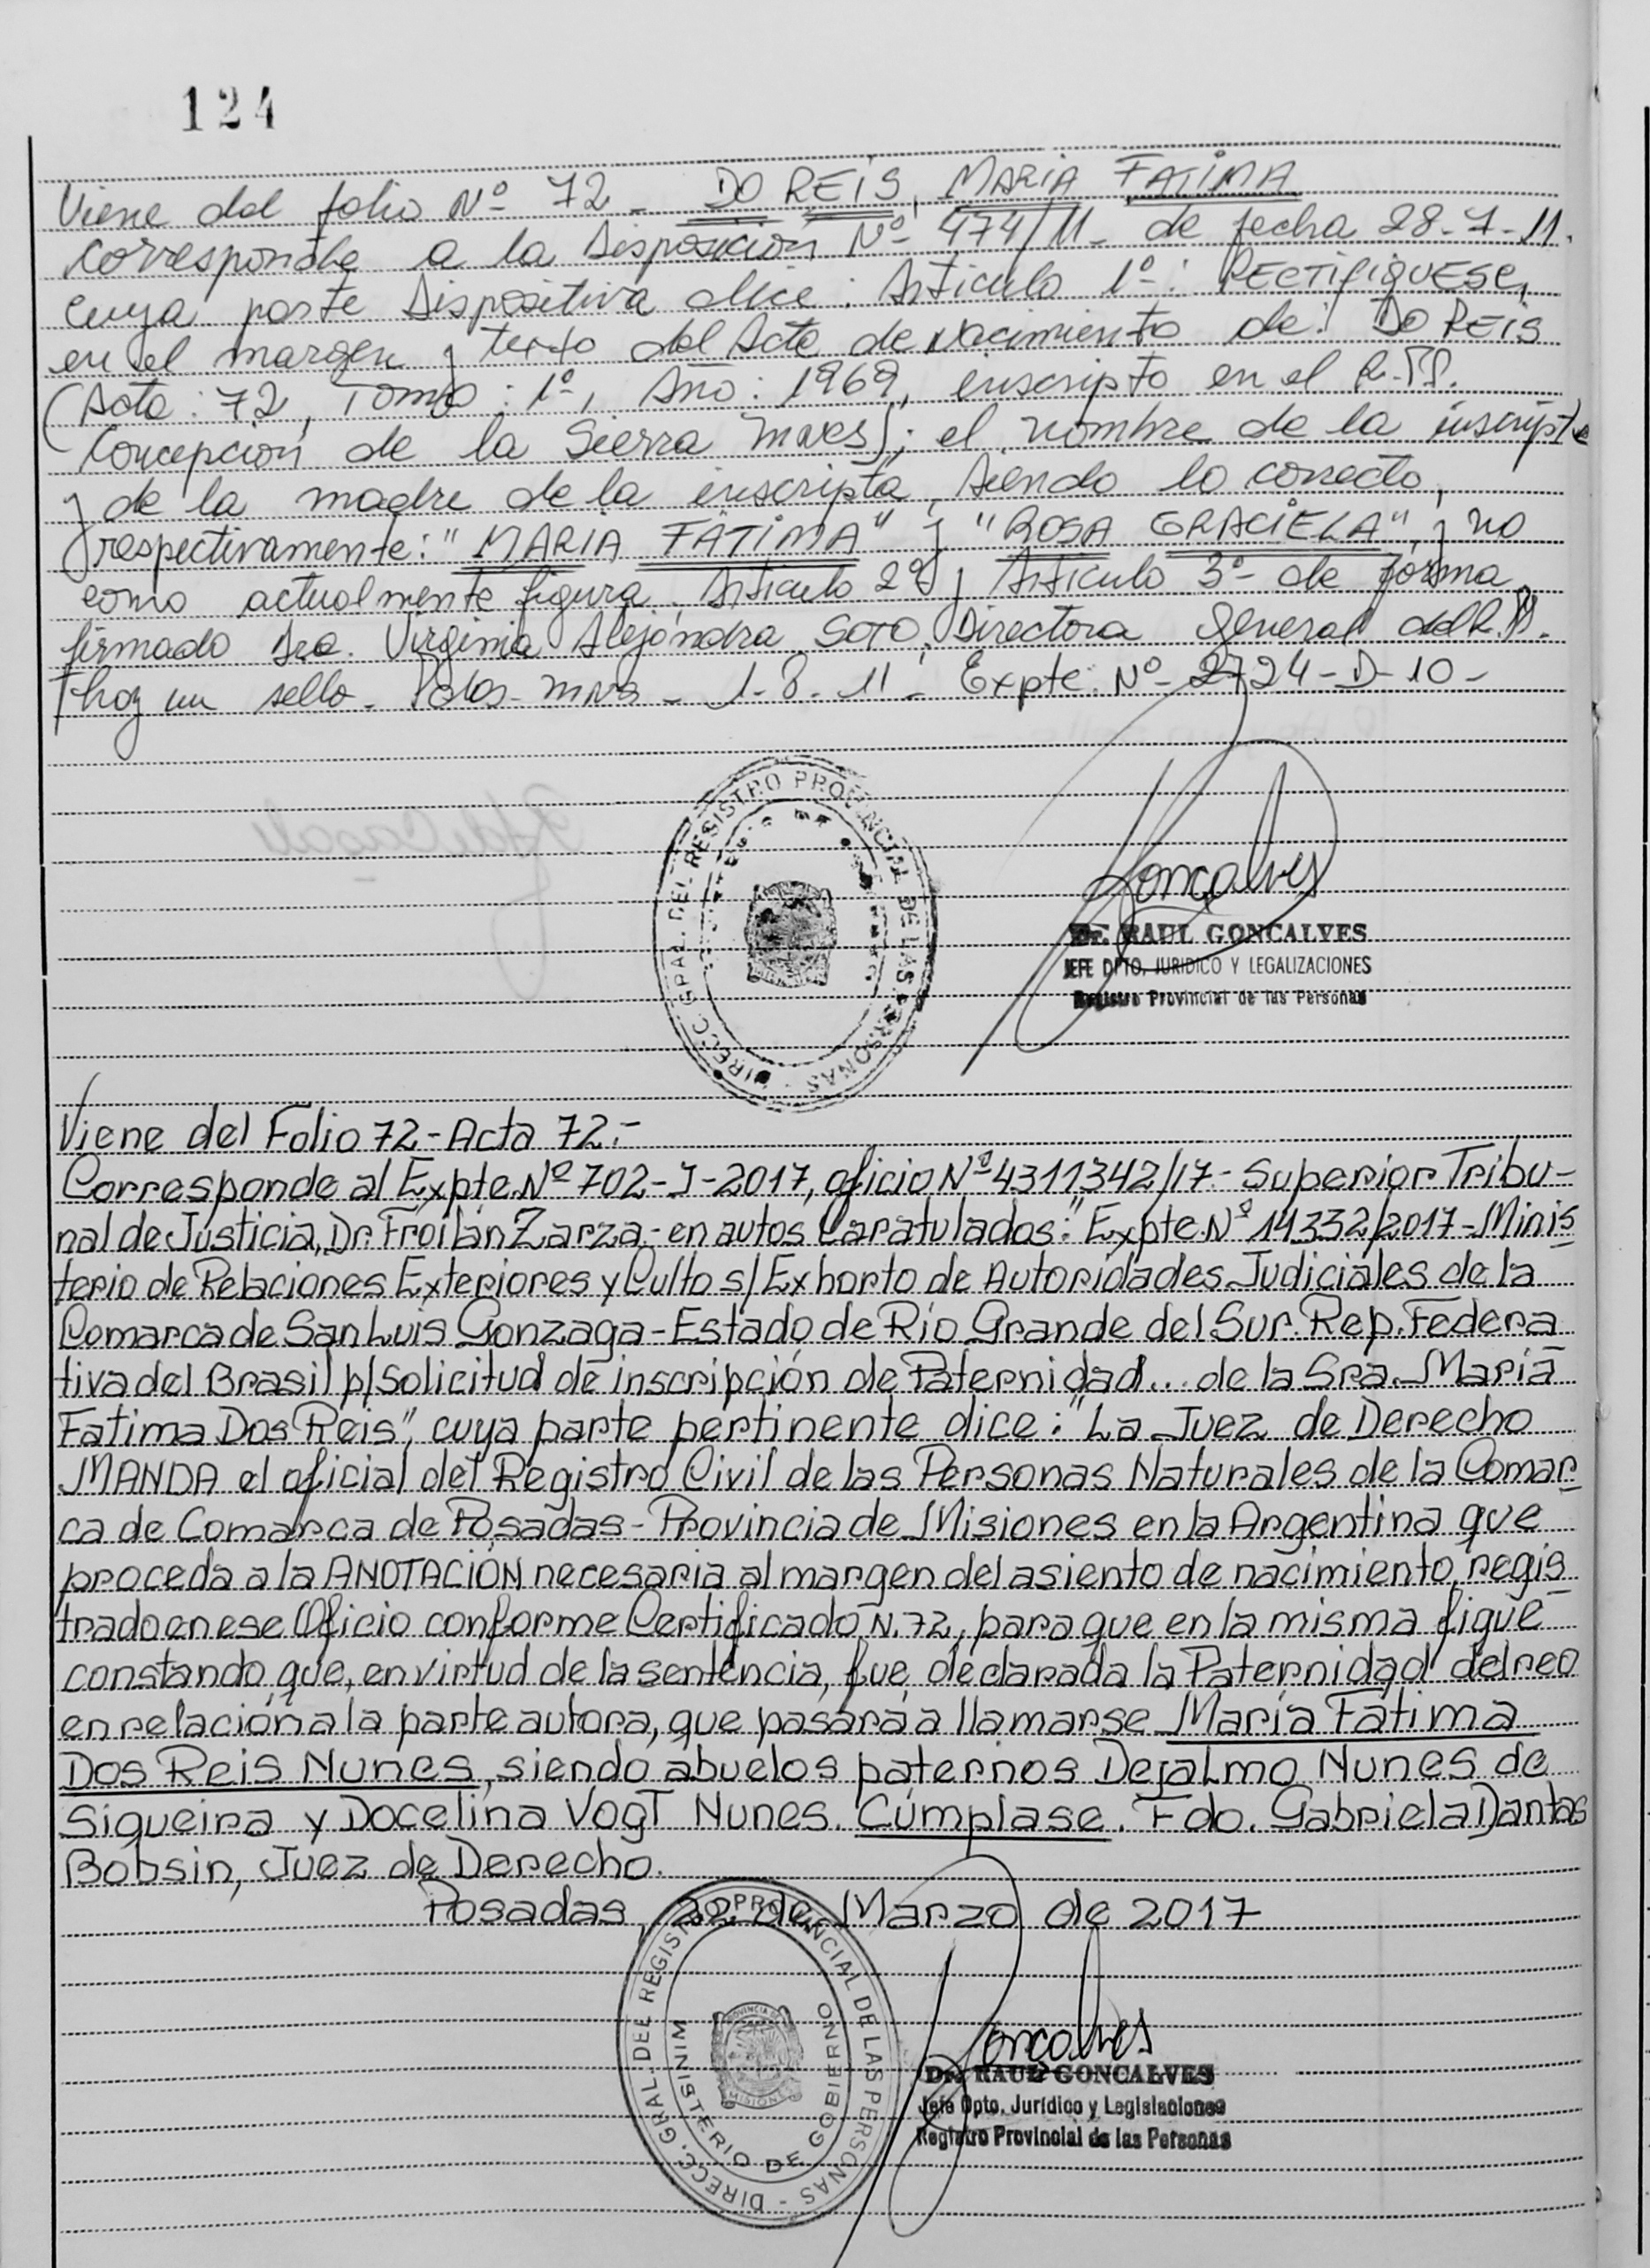 124
Viene del folio Nº 72 - DO REIS, MARIA FATIMA
corresponde a la Disposición Nº 474/11 - de fecha 28-7-11.
cuya parte Dispositiva dice: Artículo 1º: RECTIFIQUESE,
en el margen y texto del Acta de Nacimiento de: DO REIS
(Acta: 72, Tomo: 1º, Año: 1969, inscripto en el R.PP.
Concepción de la Sierra Mnes); el nombre de la inscripta
y de la madre de la inscripta, siendo lo correcto,
respectivamente: "MARIA FATIMA" y "ROSA GRACIELA", y no
como actualmente figura. Artículo 2º y Artículo 3º- de forma
firmado Dra. Virginia Alejandra SOTO, Directora General del R.PP.
hay un sello - Pdas - mnes - 1-8-11 - Expte. Nº- 2724-D-10-
DIRECC. GRAL. DEL REGISTRO PROVINCIAL DE LAS PERSONAS
Goncalves
Dr. RAUL GONCALVES
JEFE DPTO. JURIDICO Y LEGALIZACIONES
Registro Provincial de las Personas
Viene del Folio 72 - Acta 72.-
Corresponde al Expte. Nº 702-J-2017, oficio Nº 4311342/17.- Superior Tribu-
nal de Justicia, Dr. Froilán Zarza,- en autos Caratulados: "Expte. Nº 14332/2017 - Minis
terio de Relaciones Exteriores y Culto s/ Exhorto de Autoridades Judiciales de la
Comarca de San Luis Gonzaga - Estado de Río Grande del Sur. Rep. Federa
tiva del Brasil p/ Solicitud de inscripción de Paternidad... de la Sra. María
Fatima Dos Reis", cuya parte pertinente dice: "La Juez de Derecho
MANDA el oficial del Registro Civil de las Personas Naturales de la Comar
ca de Comarca de Posadas - Provincia de Misiones en la Argentina que
proceda a la ANOTACIÓN necesaria al margen del asiento de nacimiento, regis
trado en ese Oficio conforme Certificado N. 72, para que en la misma figue
constando que, en virtud de la sentencia, fue declarada la Paternidad del reo
en relación a la parte autora, que pasará a llamarse María Fátima
Dos Reis Nunes, siendo abuelos paternos Dejalmo Nunes de
Siqueira y Docelina Vogt Nunes. Cúmplase. Fdo. Gabriela Dantas
Bobsin, Juez de Derecho.
Posadas, 22 de Marzo de 2017
DIRECC. GRAL. DEL REGISTRO PROVINCIAL DE LAS PERSONAS
MINISTERIO DE GOBIERNO
PROVINCIA DE
MISIONES
Goncalves
Dr. RAUL GONCALVES
Jefe Dpto. Jurídico y Legislaciones
Registro Provincial de las Personas